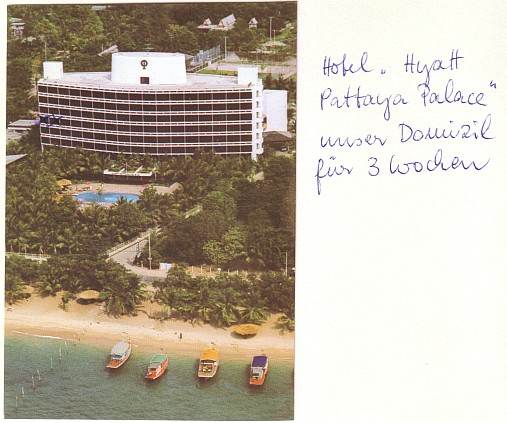 Hotel „Hyatt
Pattaya Palace“
unser Domizil
für 3 Wochen